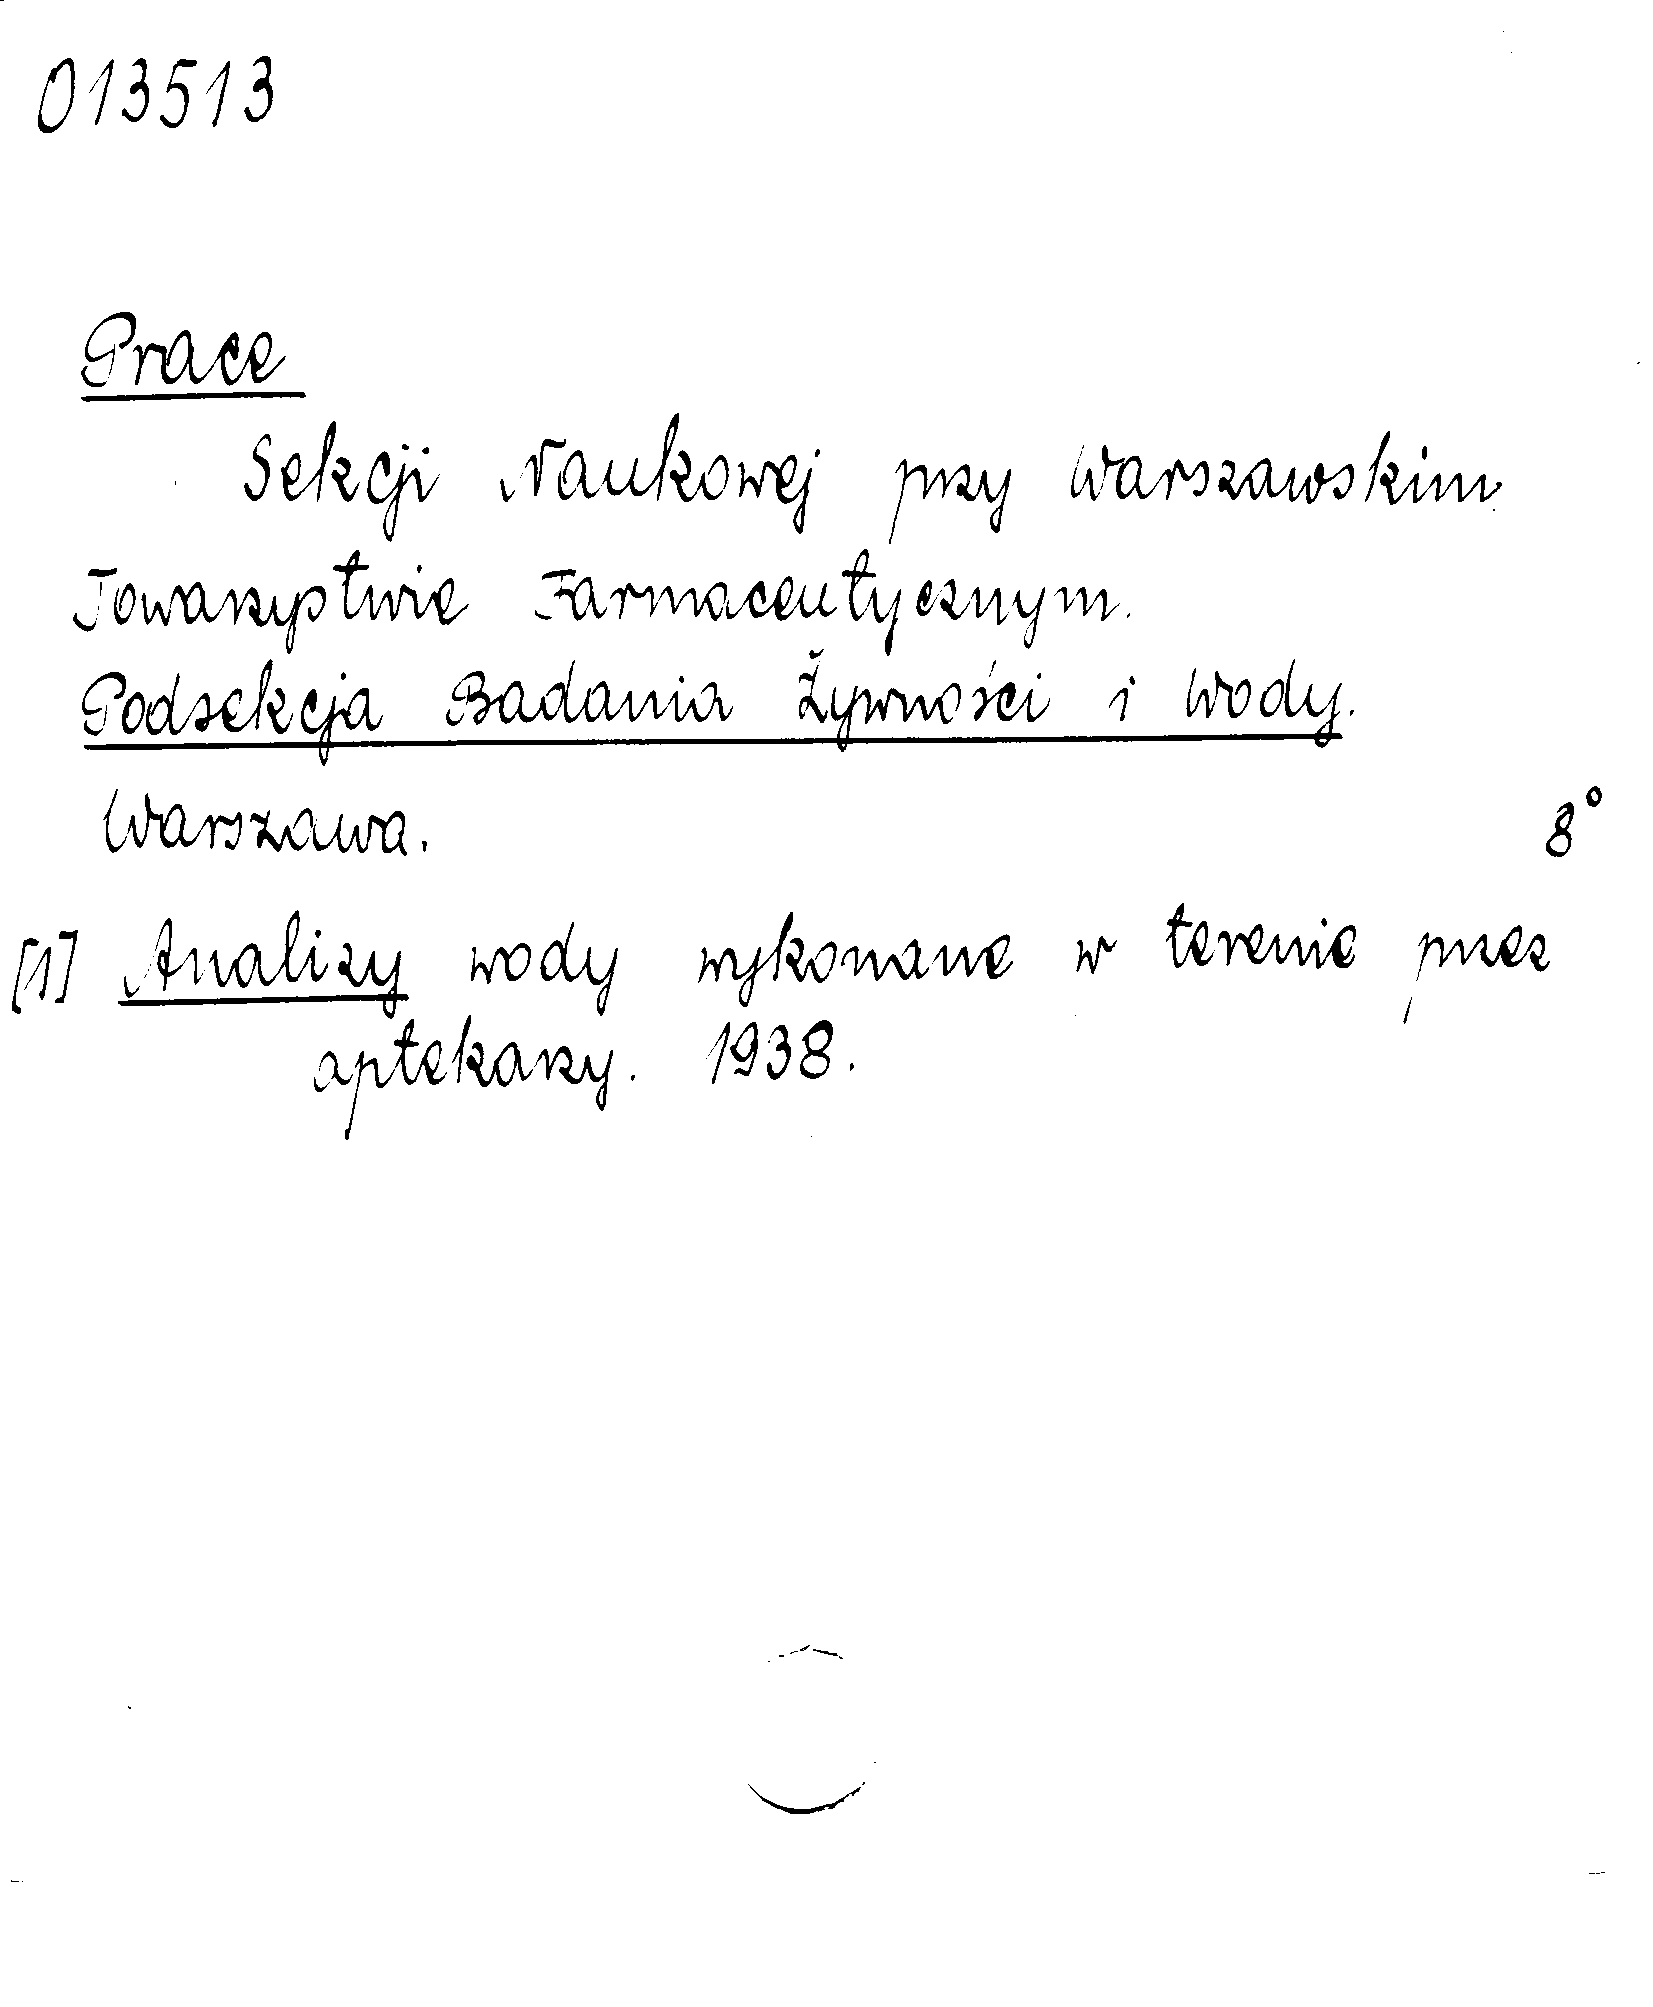 013513
Prace
Sekcji Naukowej przy Warszawskim
Towarzystwie Farmaceutycznym.
Podsekcja Badania Żywności i Wody.
Warszawa. 8°
[1] Analizy wody wykonane w terenie przez
aptekarzy. 1938.